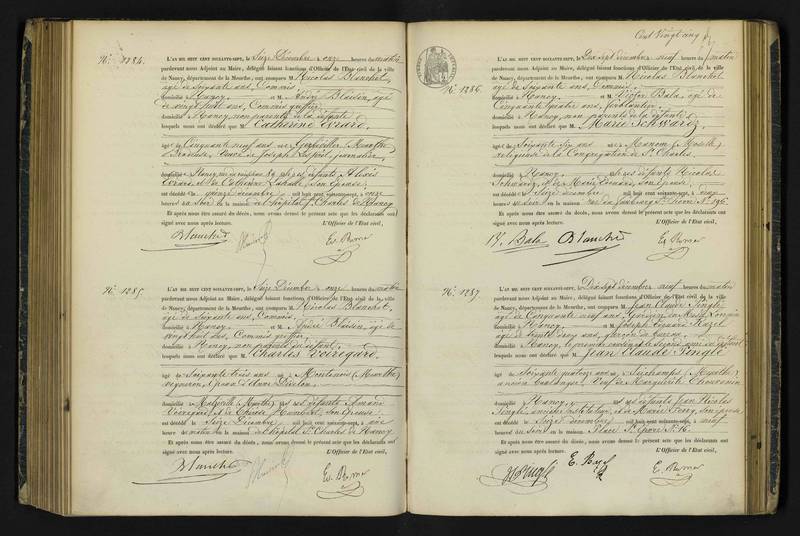 N° 1284.
L'AN MIL HUIT CENT SOIXANTE-SEPT, le Seize Décembre à onze heures du matin
pardevant nous Adjoint au Maire, délégué faisant fonctions d'Officier de l'État civil de la ville
de Nancy, département de la Meurthe, ont comparu M. Nicolas Blanchet,
âgé de soixante ans, Commis,
domicilié à Nancy, et M. André Blaison, âgé
de vingt huit ans, Commis greffier,
domicilié à Nancy, non parents de la défunte
lesquels nous ont déclaré que Catherine Evrard,
âgée de Cinquante neuf ans née à Gerbéviller (Meurthe)
Brodeuse, Veuve de Joseph journalier,
domiciliée à Nancy, fille des défunts Alexis
Evrard, et de Catherine son épouse;
est décédée le quinze Décembre mil huit cent soixante-sept, à onze
heures du soir en la maison de l'hôpital St Charles de Nancy
Et après nous être assuré du décès, nous avons dressé le présent acte que les déclarants ont
signé avec nous après lecture. L'Officier de l'État civil,
Blanchet
N° 1285.
L'AN MIL HUIT CENT SOIXANTE-SEPT, le Seize Décembre à onze heures du matin
pardevant nous Adjoint au Maire, délégué faisant fonctions d'Officier de l'État civil de la ville
de Nancy, département de la Meurthe, ont comparu M. Nicolas Blanchet,
âgé de soixante ans, Commis,
domicilié à Nancy, et M. André Blaison, âgé de
vingt huit ans, Commis greffier,
domicilié à Nancy, non parents du défunt,
lesquels nous ont déclaré que Charles Voirégard,
âgé de Soixante trois ans né à (Meurthe)
vigneron, époux d'Anne Didelon,
domicilié à Malzéville (Meurthe) fils des défunts
Voirégard, et de Thérèse Humbert, son épouse;
est décédé le Seize Décembre mil huit cent soixante-sept, à une
heure du matin en la maison de l'hôpital St Charles de Nancy
Et après nous être assuré du décès, nous avons dressé le présent acte que les déclarants ont
signé avec nous après lecture. L'Officier de l'État civil,
Blanchet
Cent Vingt cinq
N° 1286.
L'AN MIL HUIT CENT SOIXANTE-SEPT, le Dix sept décembre à neuf heures du matin
pardevant nous Adjoint au Maire, délégué faisant fonctions d'Officier de l'État civil de la ville
de Nancy, département de la Meurthe, ont comparu M. Nicolas Blanchet
âgé de soixante ans, Commis,
domicilié à Nancy, et M. Victor Bala, âgé de
Cinquante quatre ans, ferblantier,
domicilié à Nancy, non parents de la défunte
lesquels nous ont déclaré que Marie Schwartz,
âgée de Soixante six ans née à Manom (Moselle)
religieuse de la Congrégation de St Charles,
domiciliée à Nancy, fille des défunts Nicolas
Schwartz, et de Marie son épouse;
est décédée le Seize décembre mil huit cent soixante-sept, à onze
heures du soir en la maison rue du faubourg St Pierre N° 196.
Et après nous être assuré du décès, nous avons dressé le présent acte que les déclarants ont
signé avec nous après lecture. L'Officier de l'État civil,
Vr Bala Blanchet
N° 1287
L'AN MIL HUIT CENT SOIXANTE-SEPT, le Dix sept décembre à neuf heures du matin
pardevant nous Adjoint au Maire, délégué faisant fonctions d'Officier de l'État civil de la ville
de Nancy, département de la Meurthe, ont comparu M. Jean Claude Penglé
âgé de Cinquante neuf ans, Gardien du Musée Lorrain
domicilié à Nancy, et M. Joseph Édouard Hazel
âgé de trente cinq ans, garçon de bureau,
domicilié à Nancy, le premier cousin et le second ami du défunt
lesquels nous ont déclaré que Jean Claude Penglé
âgé de Soixante quatorze ans né à Seichamps (Meurthe)
ancien boulanger, Veuf de Marguerite Thouvenin
domicilié à Nancy, fils des défunts Jean Nicolas
Penglé, ancien instituteur, et de Marie Ferry, son épouse;
est décédé le Seize décembre mil huit cent soixante-sept, à neuf
heures du soir en la maison Place St Epvre N°
Et après nous être assuré du décès, nous avons dressé le présent acte que les déclarants ont
signé avec nous après lecture. L'Officier de l'État civil,